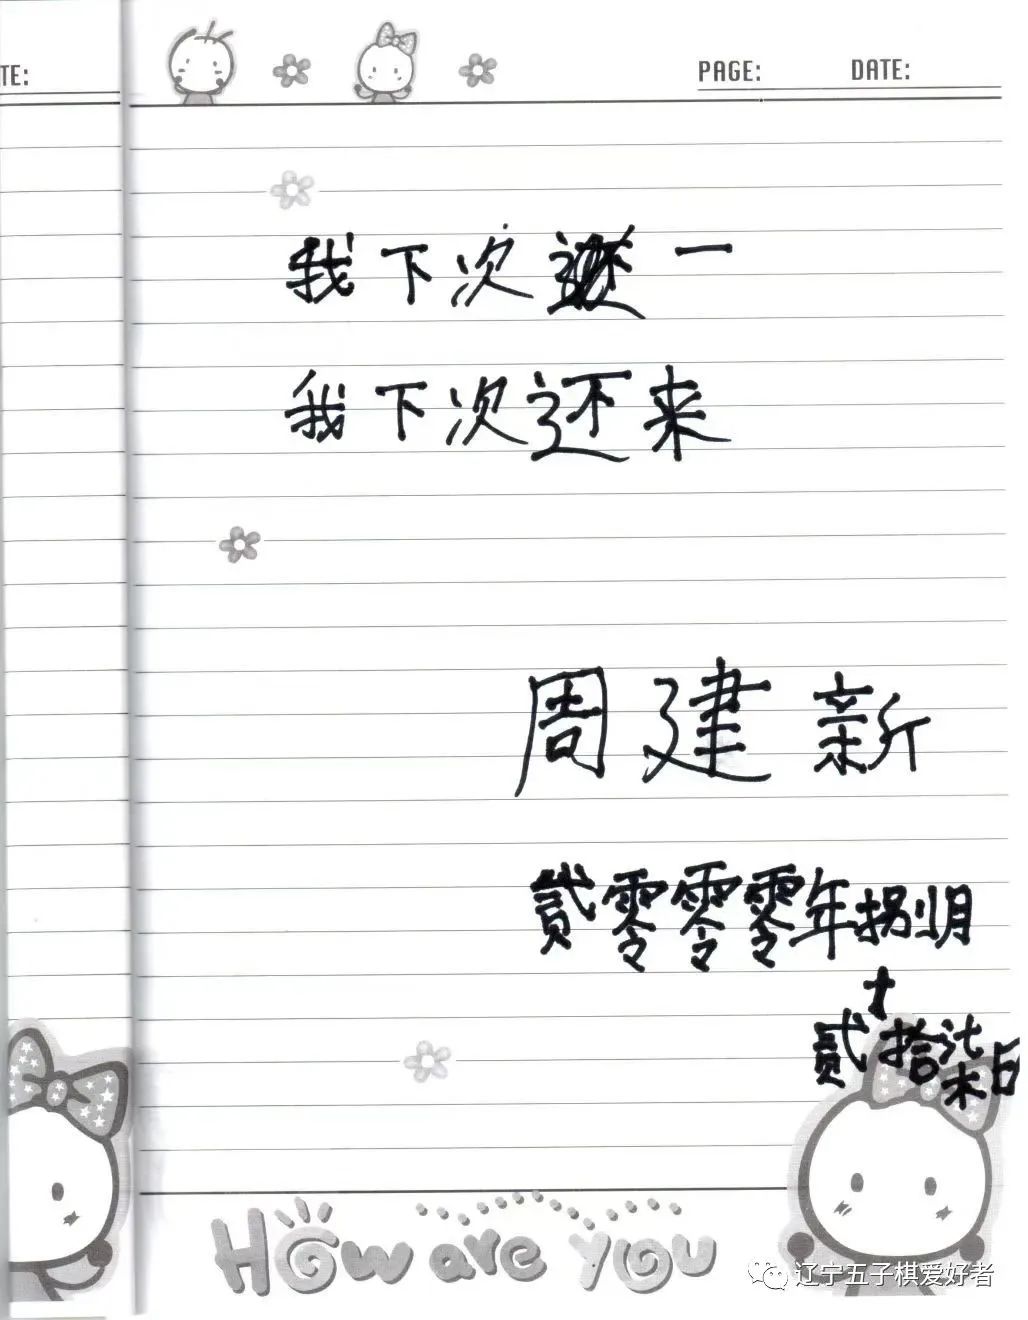 TE:
PAGE: DATE:
我下次 一
我下次还来
周建新
贰零零零年捌月
十
贰拾柒日
How are you
辽宁五子棋爱好者